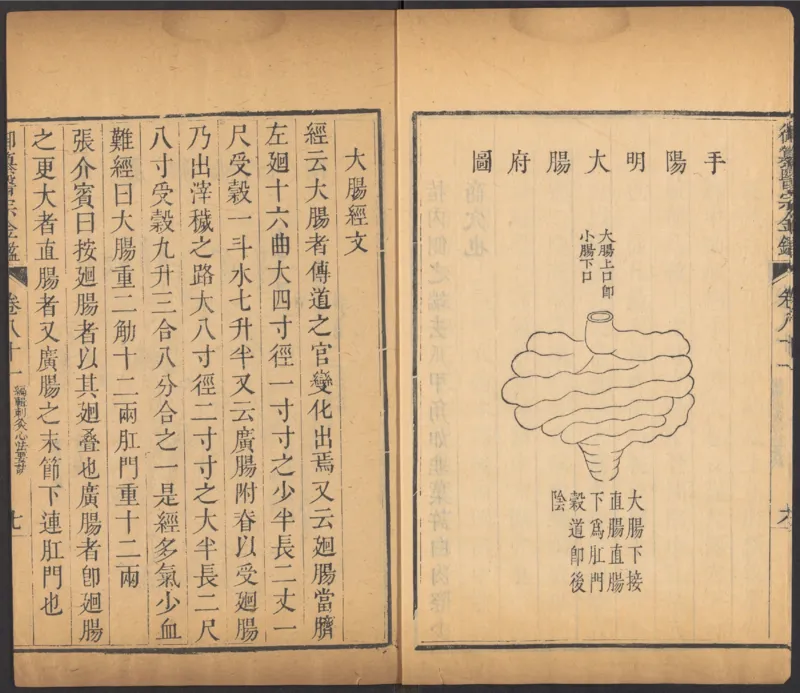 御纂醫宗金鑑
卷八十一
手陽明大腸府圖
大腸上口卽
小腸下口
大腸下接
直腸直腸
下爲肛門
穀道卽後
陰
大腸經文
經云大腸者傳道之官變化出焉又云廻腸當臍
左廻十六曲大四寸徑一寸寸之少半長二丈一
尺受穀一斗水七升半又云廣腸附脊以受廻腸
乃出滓穢之路大八寸徑二寸寸之大半長二尺
八寸受穀九升三合八分合之一是經多氣少血
難經曰大腸重二觔十二兩肛門重十二兩
張介賓曰按廻腸者以其廻叠也廣腸者卽廻腸
之更大者直腸者又廣腸之末節下連肛門也
御纂醫宗金鑑
卷八十一
編輯刺灸心法要訣
七